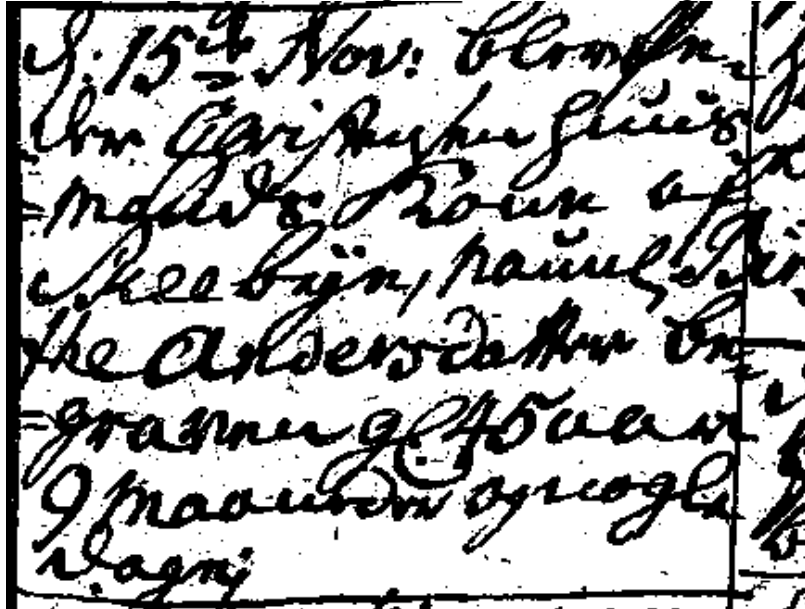 d: 15de Nov: blev Chr=
sten Christensen Huus
=mands Kone af
Skeebÿe, navnl: Kir
the Andersdatter be
=graven gl: 45 aar
9 maaneder og nogle
dage;